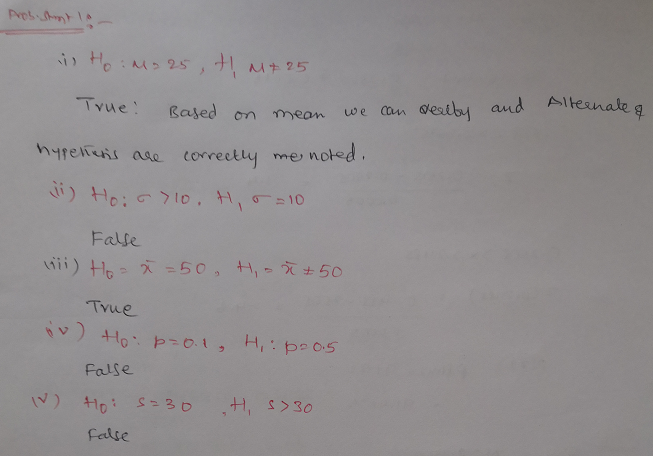 i) H₀ : μ = 25 , H₁ μ ≠ 25
True: Based on mean we can and Alternate &
are correctly
ii) H₀: σ > 10. H₁ σ = 10
False
iii) H₀ = x̄ = 50, H₁ = x̄ ≠ 50
True
iv) H₀: p = 0.1, H₁: p = 0.5
False
v) H₀: s = 30 , H₁ s > 30
False